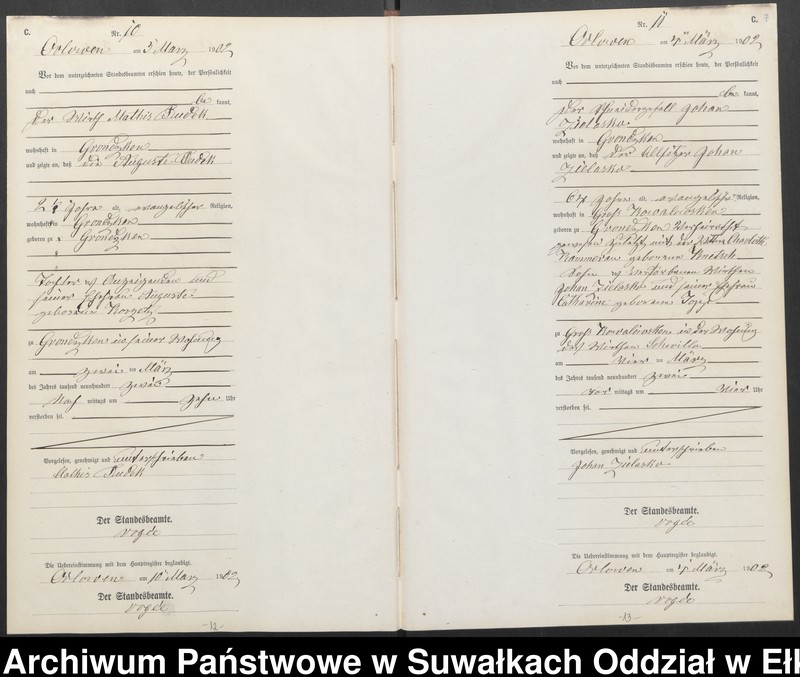 C.
Nr. 10
Orlowen am 3 März 1902
Vor dem unterzeichneten Standesbeamten erschien heute, der Persönlichkeit
nach
be kannt,
Der Wirth Mathis Dudek
wohnhaft in Grondzken
und zeigte an, daß die Auguste Dudek
2 1/2 Jahre evangelischer Religion,
wohnhaft in Grondzken
geboren zu Grondzken
Tochter des Anzeigenden und
seiner Ehefrau Auguste
geborene
zu Grondzken in seiner Wohnung
am zwei ten März
des Jahres tausend neunhundert zwei
Nach mittags um zehn Uhr
verstorben sei.
Vorgelesen, genehmigt und unterschrieben
Mathis Dudek
Der Standesbeamte.
Vogée
Die Uebereinstimmung mit dem Hauptregister beglaubigt.
Orlowen am März 1902
Der Standesbeamte.
Vogée
-12-
C.
Nr. 11
Orlowen am 4 März 1902
Vor dem unterzeichneten Standesbeamten erschien heute, der Persönlichkeit
nach
be kannt,
Der Schneidergesell Johan
Zielasko
wohnhaft in Grondzken
und zeigte an, daß der Altsitzer Johan
Zielasko
Jahre alt, evangelischer Religion,
wohnhaft in Groß Kowalewsken
geboren zu Grondzken Verheirathet
gewesen zuletzt mit der Charlotte
geborene
Sohn des verstorbenen Wirthen
Johan Zielasko und seiner Ehefrau
Catharine geborene
zu Groß Kowalewsken in der Wohnung
des Wirthen
am vier ten März
des Jahres tausend neunhundert zwei
Vor mittags um vier Uhr
verstorben sei.
Vorgelesen, genehmigt und unterschrieben
Johan Zielasko
Der Standesbeamte.
Vogée
Die Uebereinstimmung mit dem Hauptregister beglaubigt.
Orlowen am 4 März 1902
Der Standesbeamte.
Vogée
-13-
Archiwum Państwowe w Suwałkach Oddział w Ełk